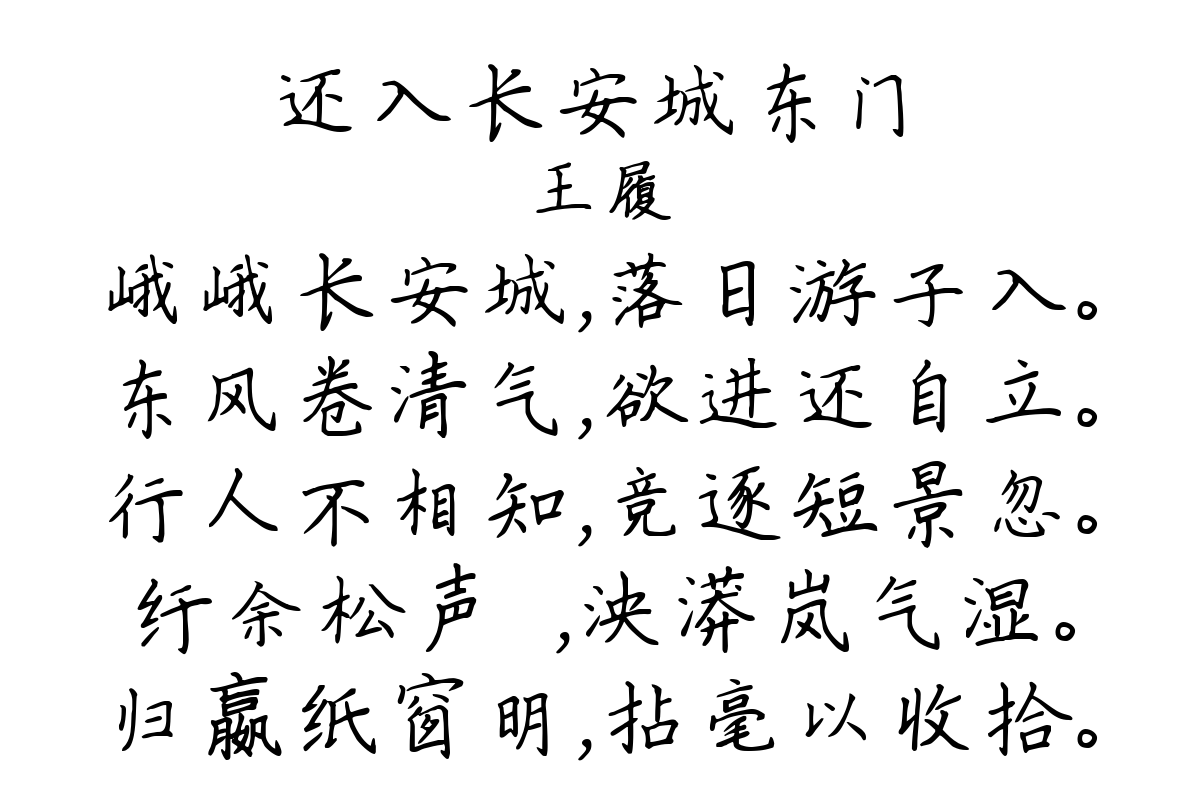 还入长安城东门
王履
峨峨长安城,落日游子入。
东风卷清气,欲进还自立。
行人不相知,竞逐短景忽。
纡余松声 ,泱漭岚气湿。
归赢纸窗明,拈毫以收拾。